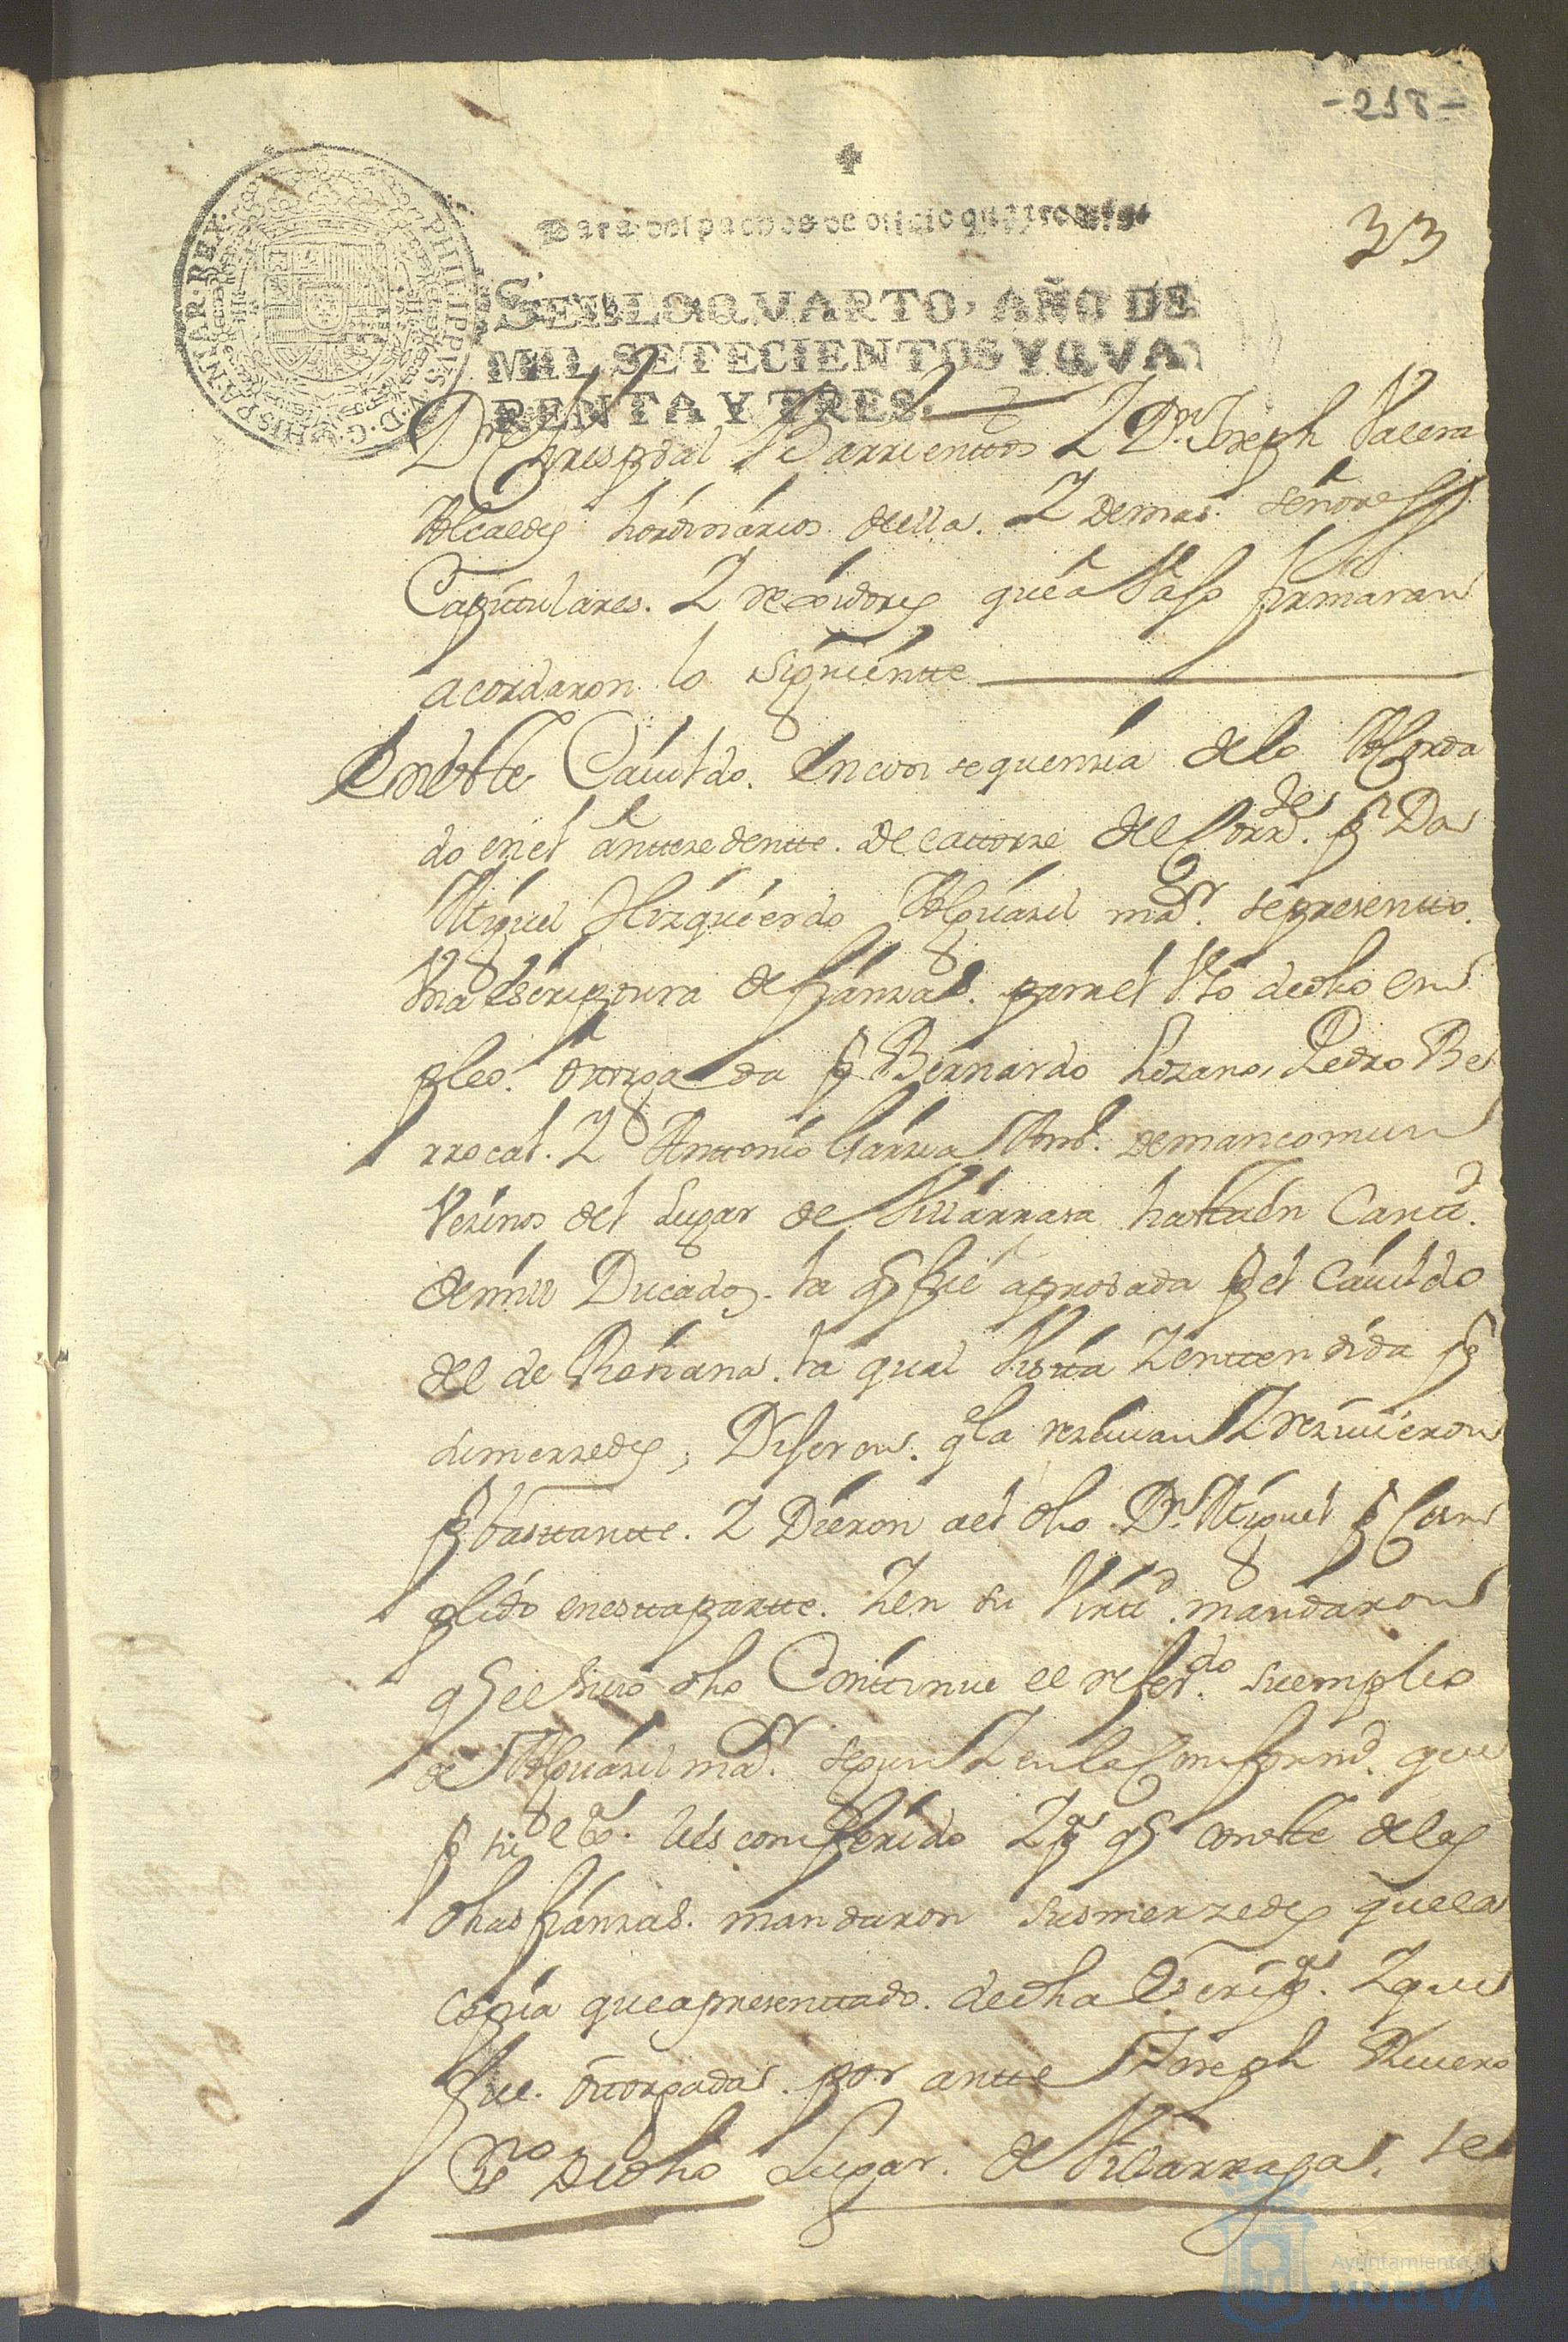 -218-
Para despachos de oficio quatro mrs
33
PHILIPPVS. V. D. G. HISPANIAR. REX.
SELLO QVARTO, AÑO DE
MIL SETECIENTOS Y QVA
RENTA Y TRES.
Dn Chrisptoal Barrientos Y Dn Joseph Valera
Alcaldes hordinarios della. Y demas señores
Capitulares. Y rexidores que a Vajo firmaran
acordaron lo siguientte
En este Cauildo. en consequenzia de lo Acorda
do en el anttezedentte. de cattorze del Corrtes. pr Dn
Miguel Hizquierdo Alguazil mor. se presentto.
Vna escriptura de fianzas. para el Vso de dho em
pleo. ottorgada pr Bernardo Lozano, Pedro Be
rrocal. Y Anttonio Garzia de mancomun
Vezinos del Lugar de Villarrasa hasta en Cantd.
de mill Ducados. la q fue aprobada pr el Cauildo
del de Roziana. la qual Vista Y enttendida pr
sus merzedes; Dijeron. q la reziuian Y reziuieron
pr basttantte. Y Dieron a el dho Dn Miguel pr Cum
plido en esta partte. Y en su Virtd. mandaron
q el suso dho Conttinue el referdo. su empleo
de Alguazil mor. segun Y en la Conformd. que
pr su exa. le es conferido Y pa q conste de las
dhas fianzas. mandaron sus merzedes que la
copia que a presenttado. de dha Escripa. Y que
fue. ottorgada. por antte Joseph Riuero
Sno de dho Lugar. de Villarrasa. se
Ayuntamiento de
HUELVA